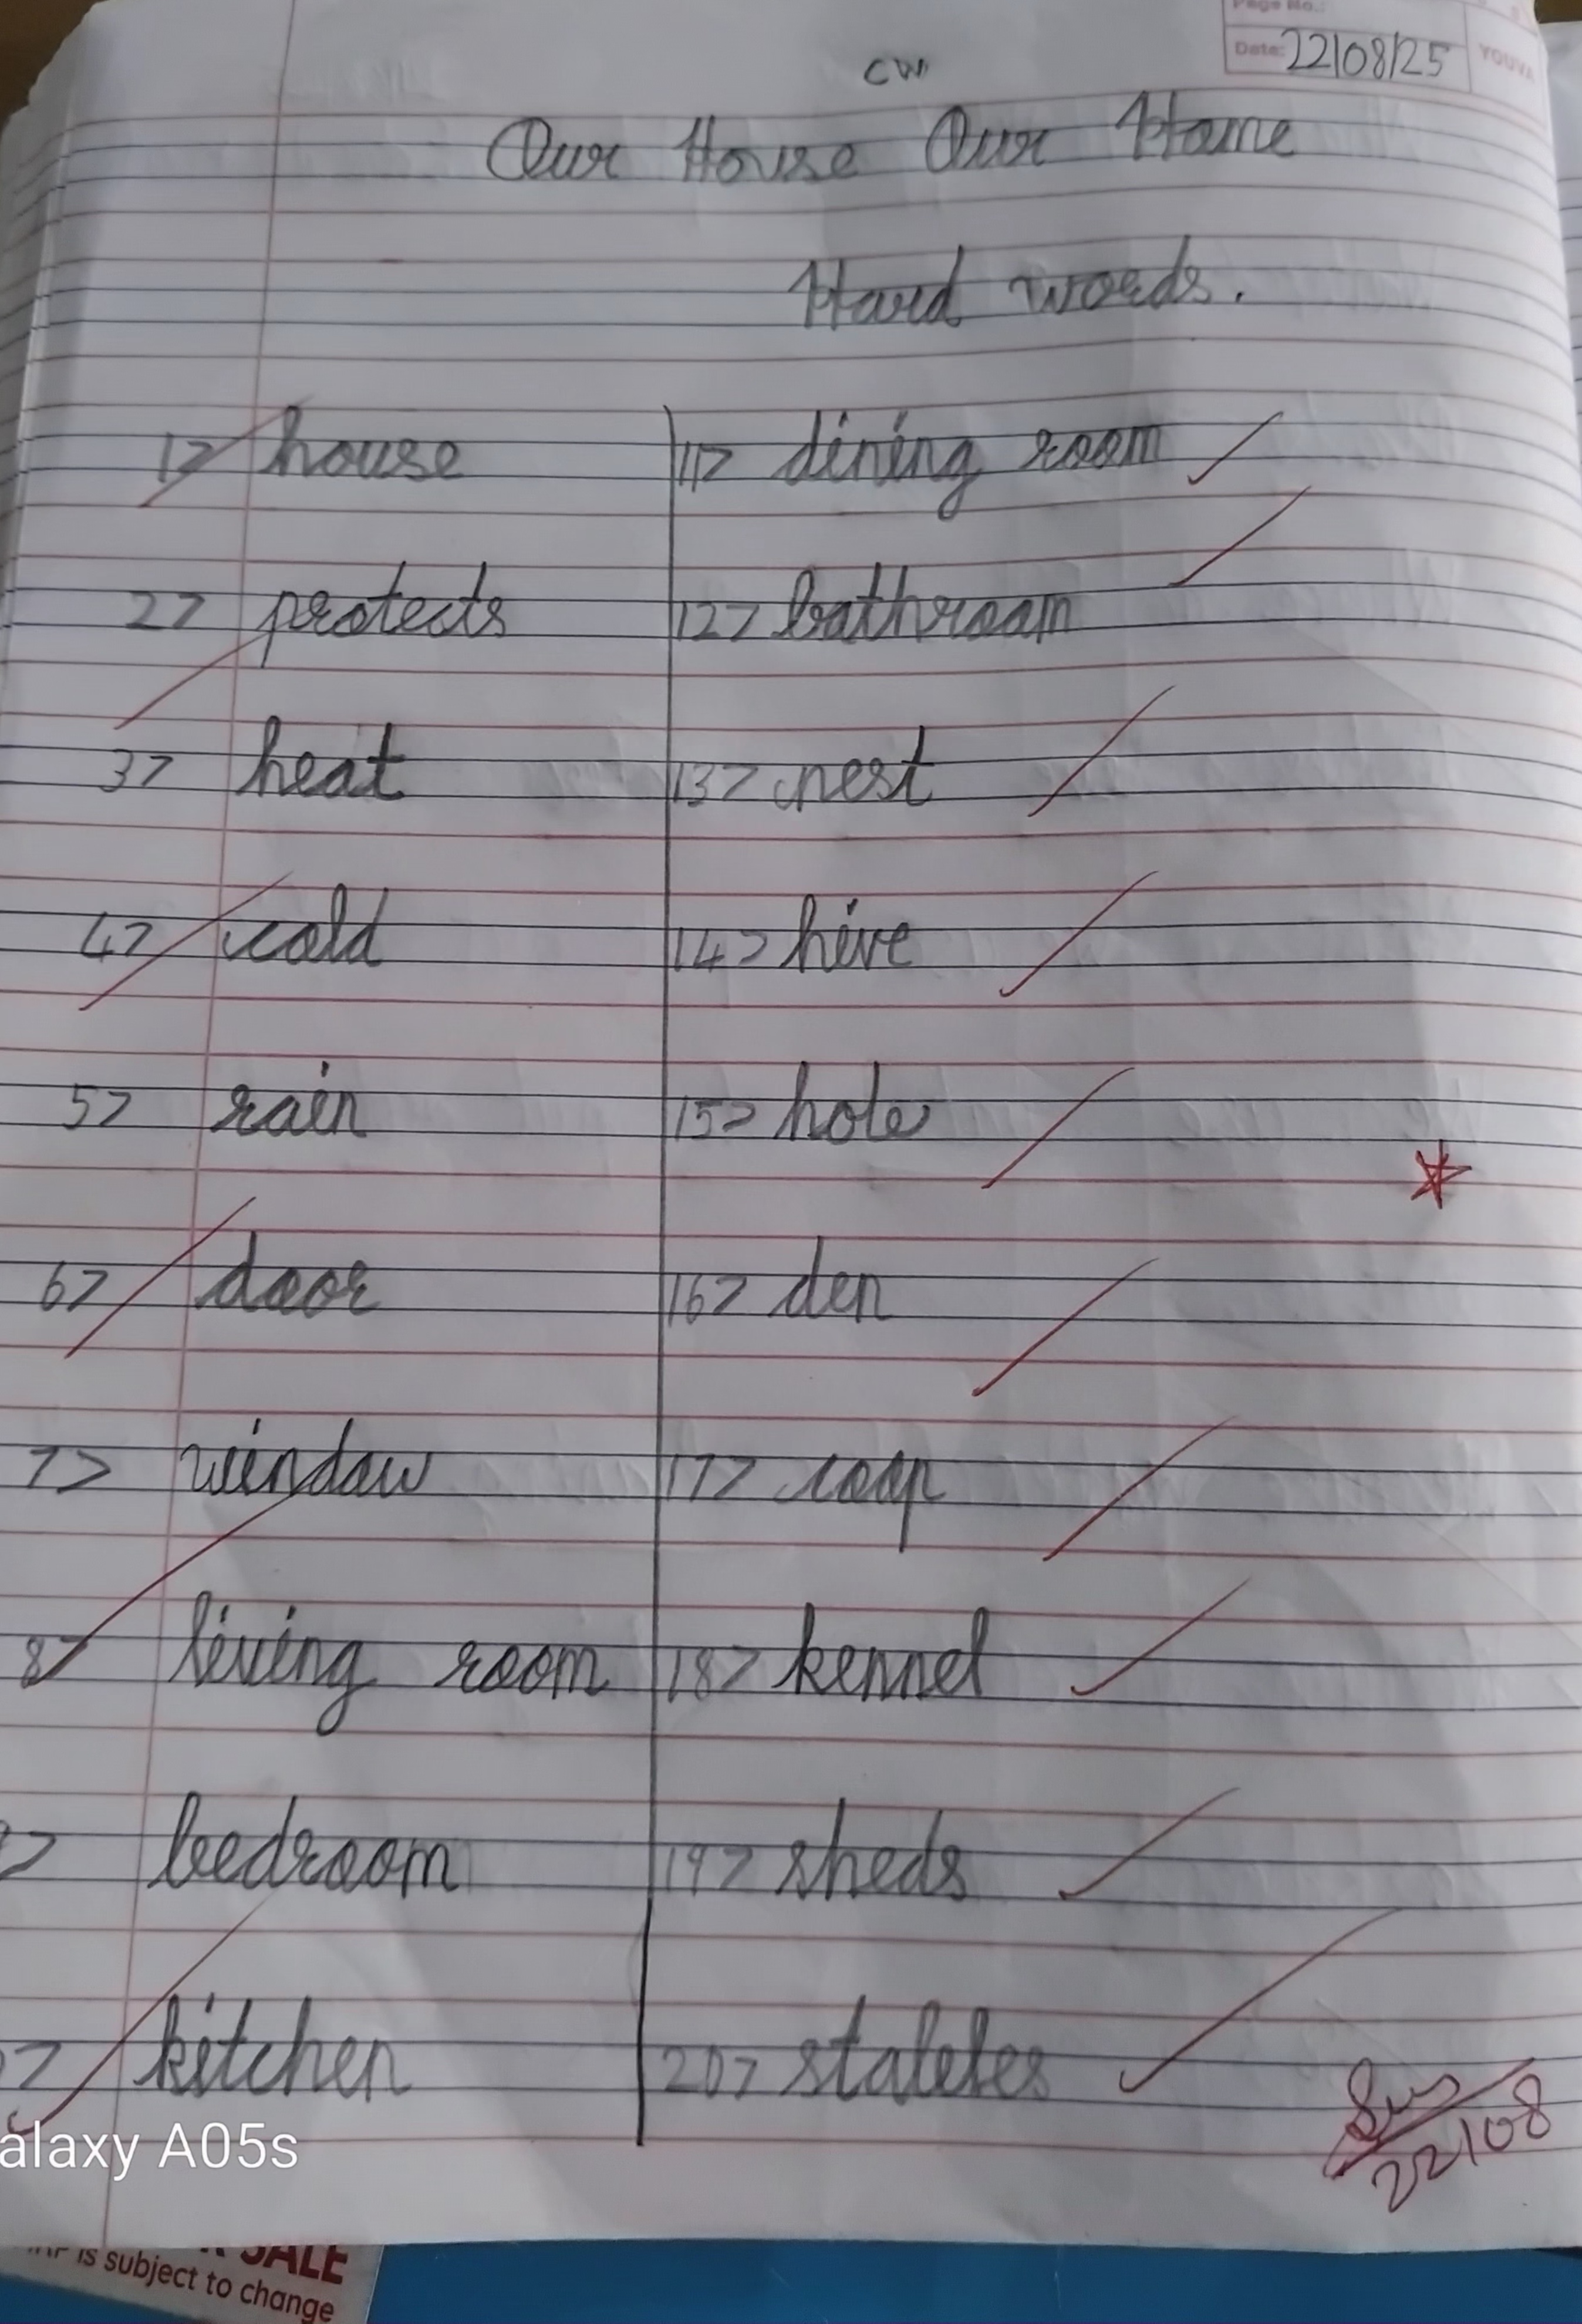 Page No.:
Date: 22/08/25
YOUVA
CW
Our House Our Home
Hard words.
1> house
2> protects
3> heat
4> cold
5> rain
6> door
7> window
8> living room
> bedroom
> kitchen
11> dining room
12> bathroom
13> nest
14> hive
15> hole
16> den
17> coop
18> kennel
19> sheds
20> stables
22/08
alaxy A05s
SALE
IS subject to change